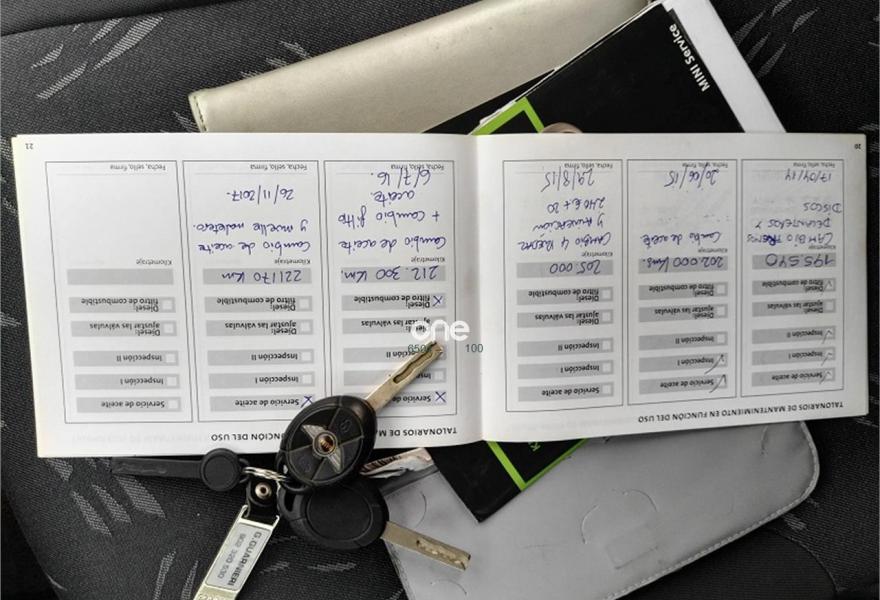 MINI Service
20
TALONARIOS DE MANTENIMIENTO EN FUNCIÓN DEL USO
Servicio de aceite
Inspección I
Inspección II
Diesel:
ajustar las válvulas
Diesel:
filtro de combustible
Kilometraje
195.540
CAMBIO FRENOS
DELANTEROS Y
DISCOS
17/04/14
Fecha, sello, firma
Servicio de aceite
Inspección I
Inspección II
Diesel:
ajustar las válvulas
Diesel:
filtro de combustible
Kilometraje
202.000 Kms.
Cambio de aceite
20/06/15
Fecha, sello, firma
Servicio de aceite
Inspección I
Inspección II
Diesel:
ajustar las válvulas
Diesel:
filtro de combustible
Kilometraje
205.000
CAMBIO 4 RUEDAS
Y ALINEACION
240 € + 20
29/8/15
Fecha, sello, firma
TALONARIOS DE MA
NCIÓN DEL USO
de aceite
Insp
Inspección II
ajustar las válvulas
Diesel:
filtro de combustible
Kilometraje
212.300 Km.
Cambio de aceite
+ cambio filtro
aceite.
6/7/16.
Fecha, sello, firma
Servicio de aceite
Inspección I
Inspección II
Diesel:
ajustar las válvulas
Diesel:
filtro de combustible
Kilometraje
221170 Km
Cambio de aceite
y muelle maletero.
26/11/2017.
Fecha, sello, firma
Servicio de aceite
Inspección I
Inspección II
Diesel:
ajustar las válvulas
Diesel:
filtro de combustible
Kilometraje
Fecha, sello, firma
21
one
100
G.GUARNIERI
902 320 530